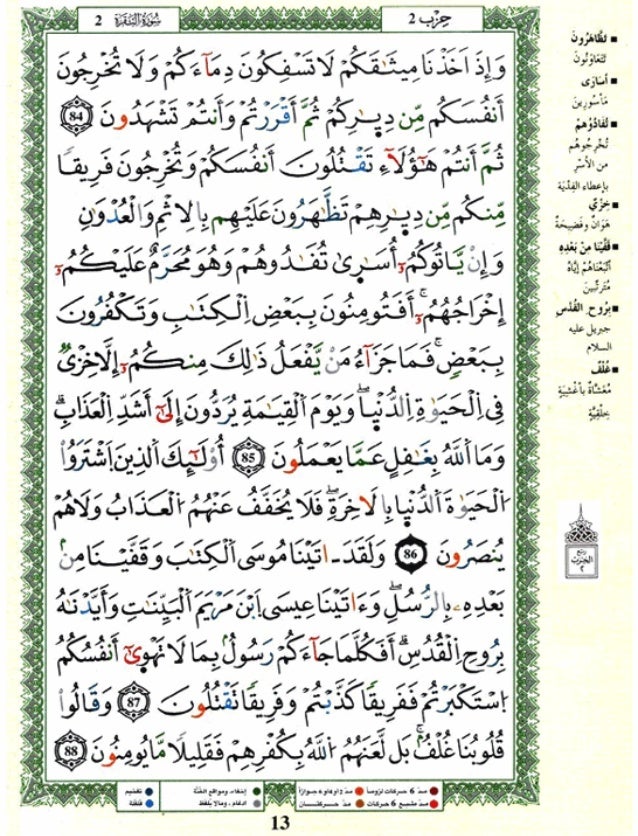 سُورَةُ الْبَقَرَة 2
حِزْب 2
وَإِذَ اَخَذْنَا مِيثَٰقَكُمْ لَا تَسْفِكُونَ دِمَآءَكُمْ وَلَا تُخْرِجُونَ
أَنفُسَكُم مِّن دِيٰرِكُمْ ثُمَّ أَقْرَرْتُمْ وَأَنتُمْ تَشْهَدُونَ 84
ثُمَّ أَنتُمْ هَٰٓؤُلَآءِ تَقْتُلُونَ أَنفُسَكُمْ وَتُخْرِجُونَ فَرِيقاً
مِّنكُم مِّن دِيٰرِهِمْ تَظَّٰهَرُونَ عَلَيْهِم بِالِاثْمِ وَالْعُدْوَٰنِ
وَإِنْ يَّاتُوكُمُۥٓ أُسَٰرىٰ تُفَٰدُوهُمْ وَهُوَ مُحَرَّمٌ عَلَيْكُمُۥٓ
إِخْرَاجُهُمُۥٓۚ أَفَتُومِنُونَ بِبَعْضِ اِلْكِتَٰبِ وَتَكْفُرُونَ
بِبَعْضٍۚ فَمَا جَزَآءُ مَنْ يَّفْعَلُ ذَٰلِكَ مِنكُمُۥٓ إِلَّا خِزْيٌ
فِي اِلْحَيَوٰةِ اِلدُّنْيٰاۖ وَيَوْمَ اَلْقِيَٰمَةِ يُرَدُّونَ إِلَىٰٓ أَشَدِّ اِلْعَذَابِۗ
وَمَا اَللَّهُ بِغَٰفِلٍ عَمَّا يَعْمَلُونَ 85 أُوْلَٰٓئِكَ اَلذِينَ اَشْتَرَوُاْ
اُلْحَيَوٰةَ اَلدُّنْيٰا بِالَاخِرَةِۖ فَلَا يُخَفَّفُ عَنْهُمُ اُلْعَذَابُ وَلَا هُمْ
يُنصَرُونَ 86 وَلَقَدَ اٰتَيْنَا مُوسَى اَلْكِتَٰبَ وَقَفَّيْنَا مِنۢ
بَعْدِهِۦ بِالرُّسُلِۖ وَءَاتَيْنَا عِيسَى اَبْنَ مَرْيَمَ اَلْبَيِّنَٰتِ وَأَيَّدْنَٰهُ
بِرُوحِ اِلْقُدُسِۗ أَفَكُلَّمَا جَآءَكُمْ رَسُولُۢ بِمَا لَا تَهْوىٰٓ أَنفُسُكُمُ
اُسْتَكْبَرْتُمْ فَفَرِيقاً كَذَّبْتُمْ وَفَرِيقاً تَقْتُلُونَ 87 وَقَالُواْ
قُلُوبُنَا غُلْفُۢۚ بَل لَّعَنَهُمُ اُللَّهُ بِكُفْرِهِمْ فَقَلِيلاً مَّا يُومِنُونَ 88
■ تَظَّاهَرُونَ
تَتَعَاوَنُونَ
■ أُسَارَى
مَأْسُورِينَ
■ تُفَادُوهُمْ
تُخْرِجُوهُم
من الأَسْرِ
بإعطاء الفِدْيَة
■ خِزْيٌ
هَوَانٌ وَفَضِيحَةٌ
■ قَفَّيْنَا مِنْ بَعْدِهِ
أَتْبَعْنَاهُمْ إيَّاهُ
مُتَرَتِّبِينَ
■ بِرُوحِ القُدُسِ
جبريل عليه
السلام
■ غُلْفٌ
مُغَشَّاةٌ بأَغْشِيَةٍ
خِلْقِيَّةٍ
ربع
الحِزْب
٢
مدّ 6 حركات لزوماً
مدّ 2 أو 4 أو 6 جوازاً
إخفاء، ومواقع الغُنَّة
تفخيم
مدّ مشبع 6 حركات
مدّ حركتان
ادغام، وما لا يُلفظ
قلقلة
13